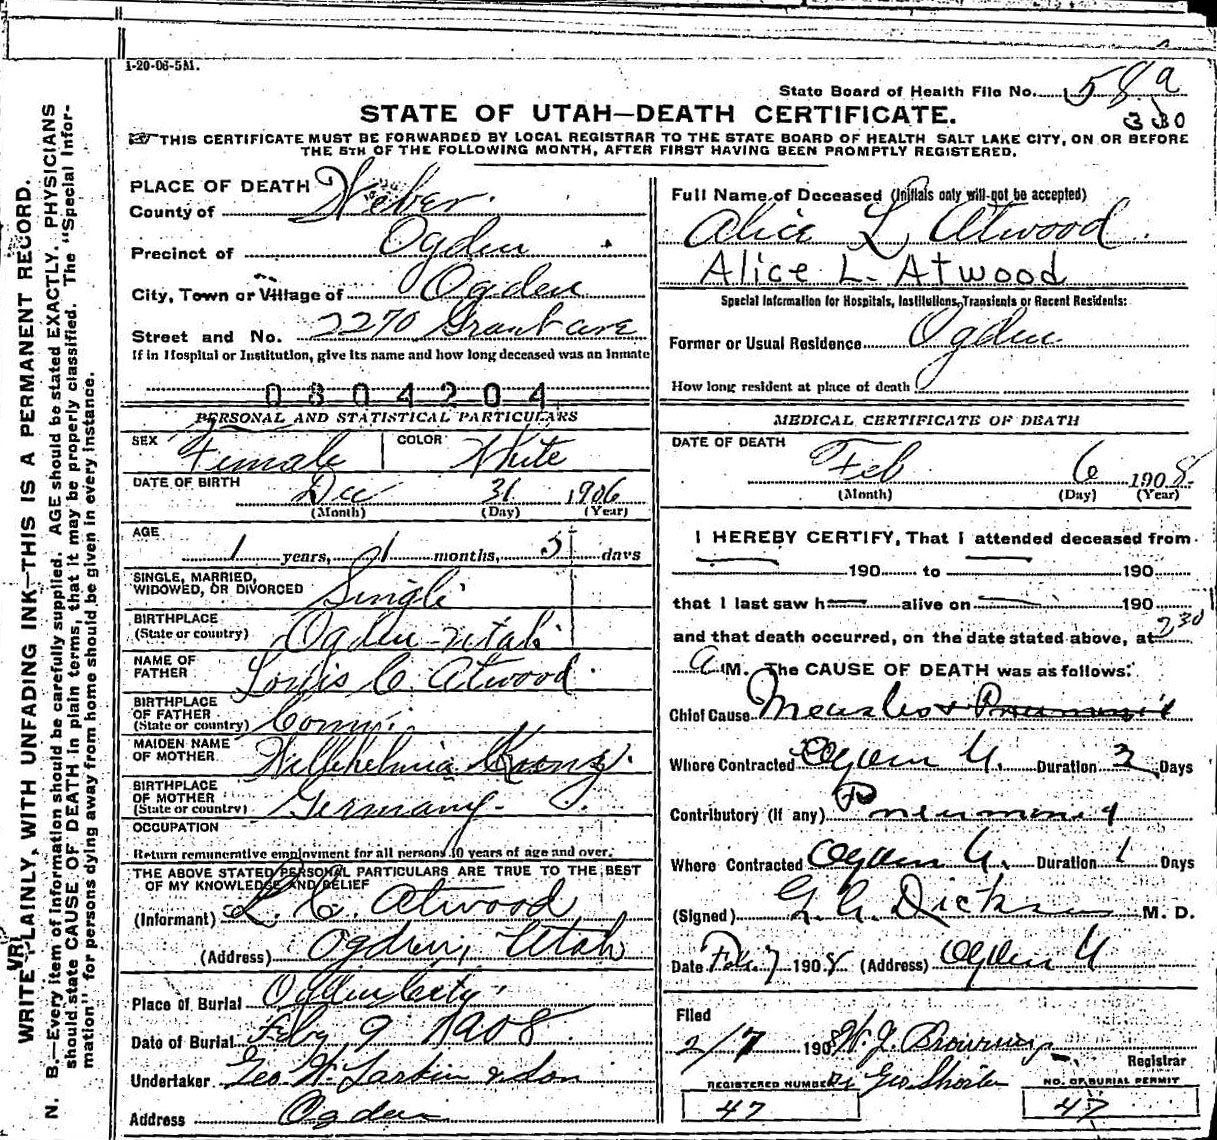 1-20-06-5M.
State Board of Health File No. 58 a
330
STATE OF UTAH—DEATH CERTIFICATE.
THIS CERTIFICATE MUST BE FORWARDED BY LOCAL REGISTRAR TO THE STATE BOARD OF HEALTH SALT LAKE CITY, ON OR BEFORE
THE 5TH OF THE FOLLOWING MONTH, AFTER FIRST HAVING BEEN PROMPTLY REGISTERED.
WRITE PLAINLY, WITH UNFADING INK—THIS IS A PERMANENT RECORD.
N. B.—Every item of information should be carefully supplied. AGE should be stated EXACTLY. PHYSICIANS
should state CAUSE OF DEATH in plain terms, that it may be properly classified. The "Special Infor-
mation" for persons dying away from home should be given in every instance.
PLACE OF DEATH
County of Weber
Precinct of Ogden
City, Town or Village of Ogden
Street and No. 2270 Grant ave
If in Hospital or Institution, give its name and how long deceased was an Inmate
0804204
PERSONAL AND STATISTICAL PARTICULARS
SEX Female COLOR White
DATE OF BIRTH Dec 31 1906
(Month) (Day) (Year)
AGE 1 years, 1 months, 5 days
SINGLE, MARRIED,
WIDOWED, OR DIVORCED Single
BIRTHPLACE
(State or country) Ogden Utah
NAME OF
FATHER Louis C. Atwood
BIRTHPLACE
OF FATHER
(State or country) Conn.
MAIDEN NAME
OF MOTHER Willihelmia
BIRTHPLACE
OF MOTHER
(State or country) Germany
OCCUPATION
Return remunerative employment for all persons 10 years of age and over.
THE ABOVE STATED PERSONAL PARTICULARS ARE TRUE TO THE BEST
OF MY KNOWLEDGE AND BELIEF
(Informant) L. C. Atwood
(Address) Ogden, Utah
Place of Burial Ogden City
Date of Burial Feby 9 1908
Undertaker Geo. W. Larkin & Son
Address Ogden
Full Name of Deceased (Initials only will not be accepted)
Alice L Atwood.
Alice L. Atwood
Special Information for Hospitals, Institutions, Transients or Recent Residents:
Former or Usual Residence Ogden
How long resident at place of death
MEDICAL CERTIFICATE OF DEATH
DATE OF DEATH Feb 6 1908
(Month) (Day) (Year)
I HEREBY CERTIFY, That I attended deceased from
190 to 190
that I last saw h alive on 190
and that death occurred, on the date stated above, at 2 30
A M. The CAUSE OF DEATH was as follows:
Chief Cause Measles & Pneumonia
Where Contracted Ogden U. Duration 2 Days
Contributory (If any) Pneumonia
Where Contracted Ogden U. Duration 1 Days
(Signed) G. A. Dickson M. D.
Date Feb 7 1908 (Address) Ogden U
Filed
2/7 1908 W. J. Browning
Registrar
Geo. Shorten
REGISTERED NUMBER
47
NO. OF BURIAL PERMIT
47